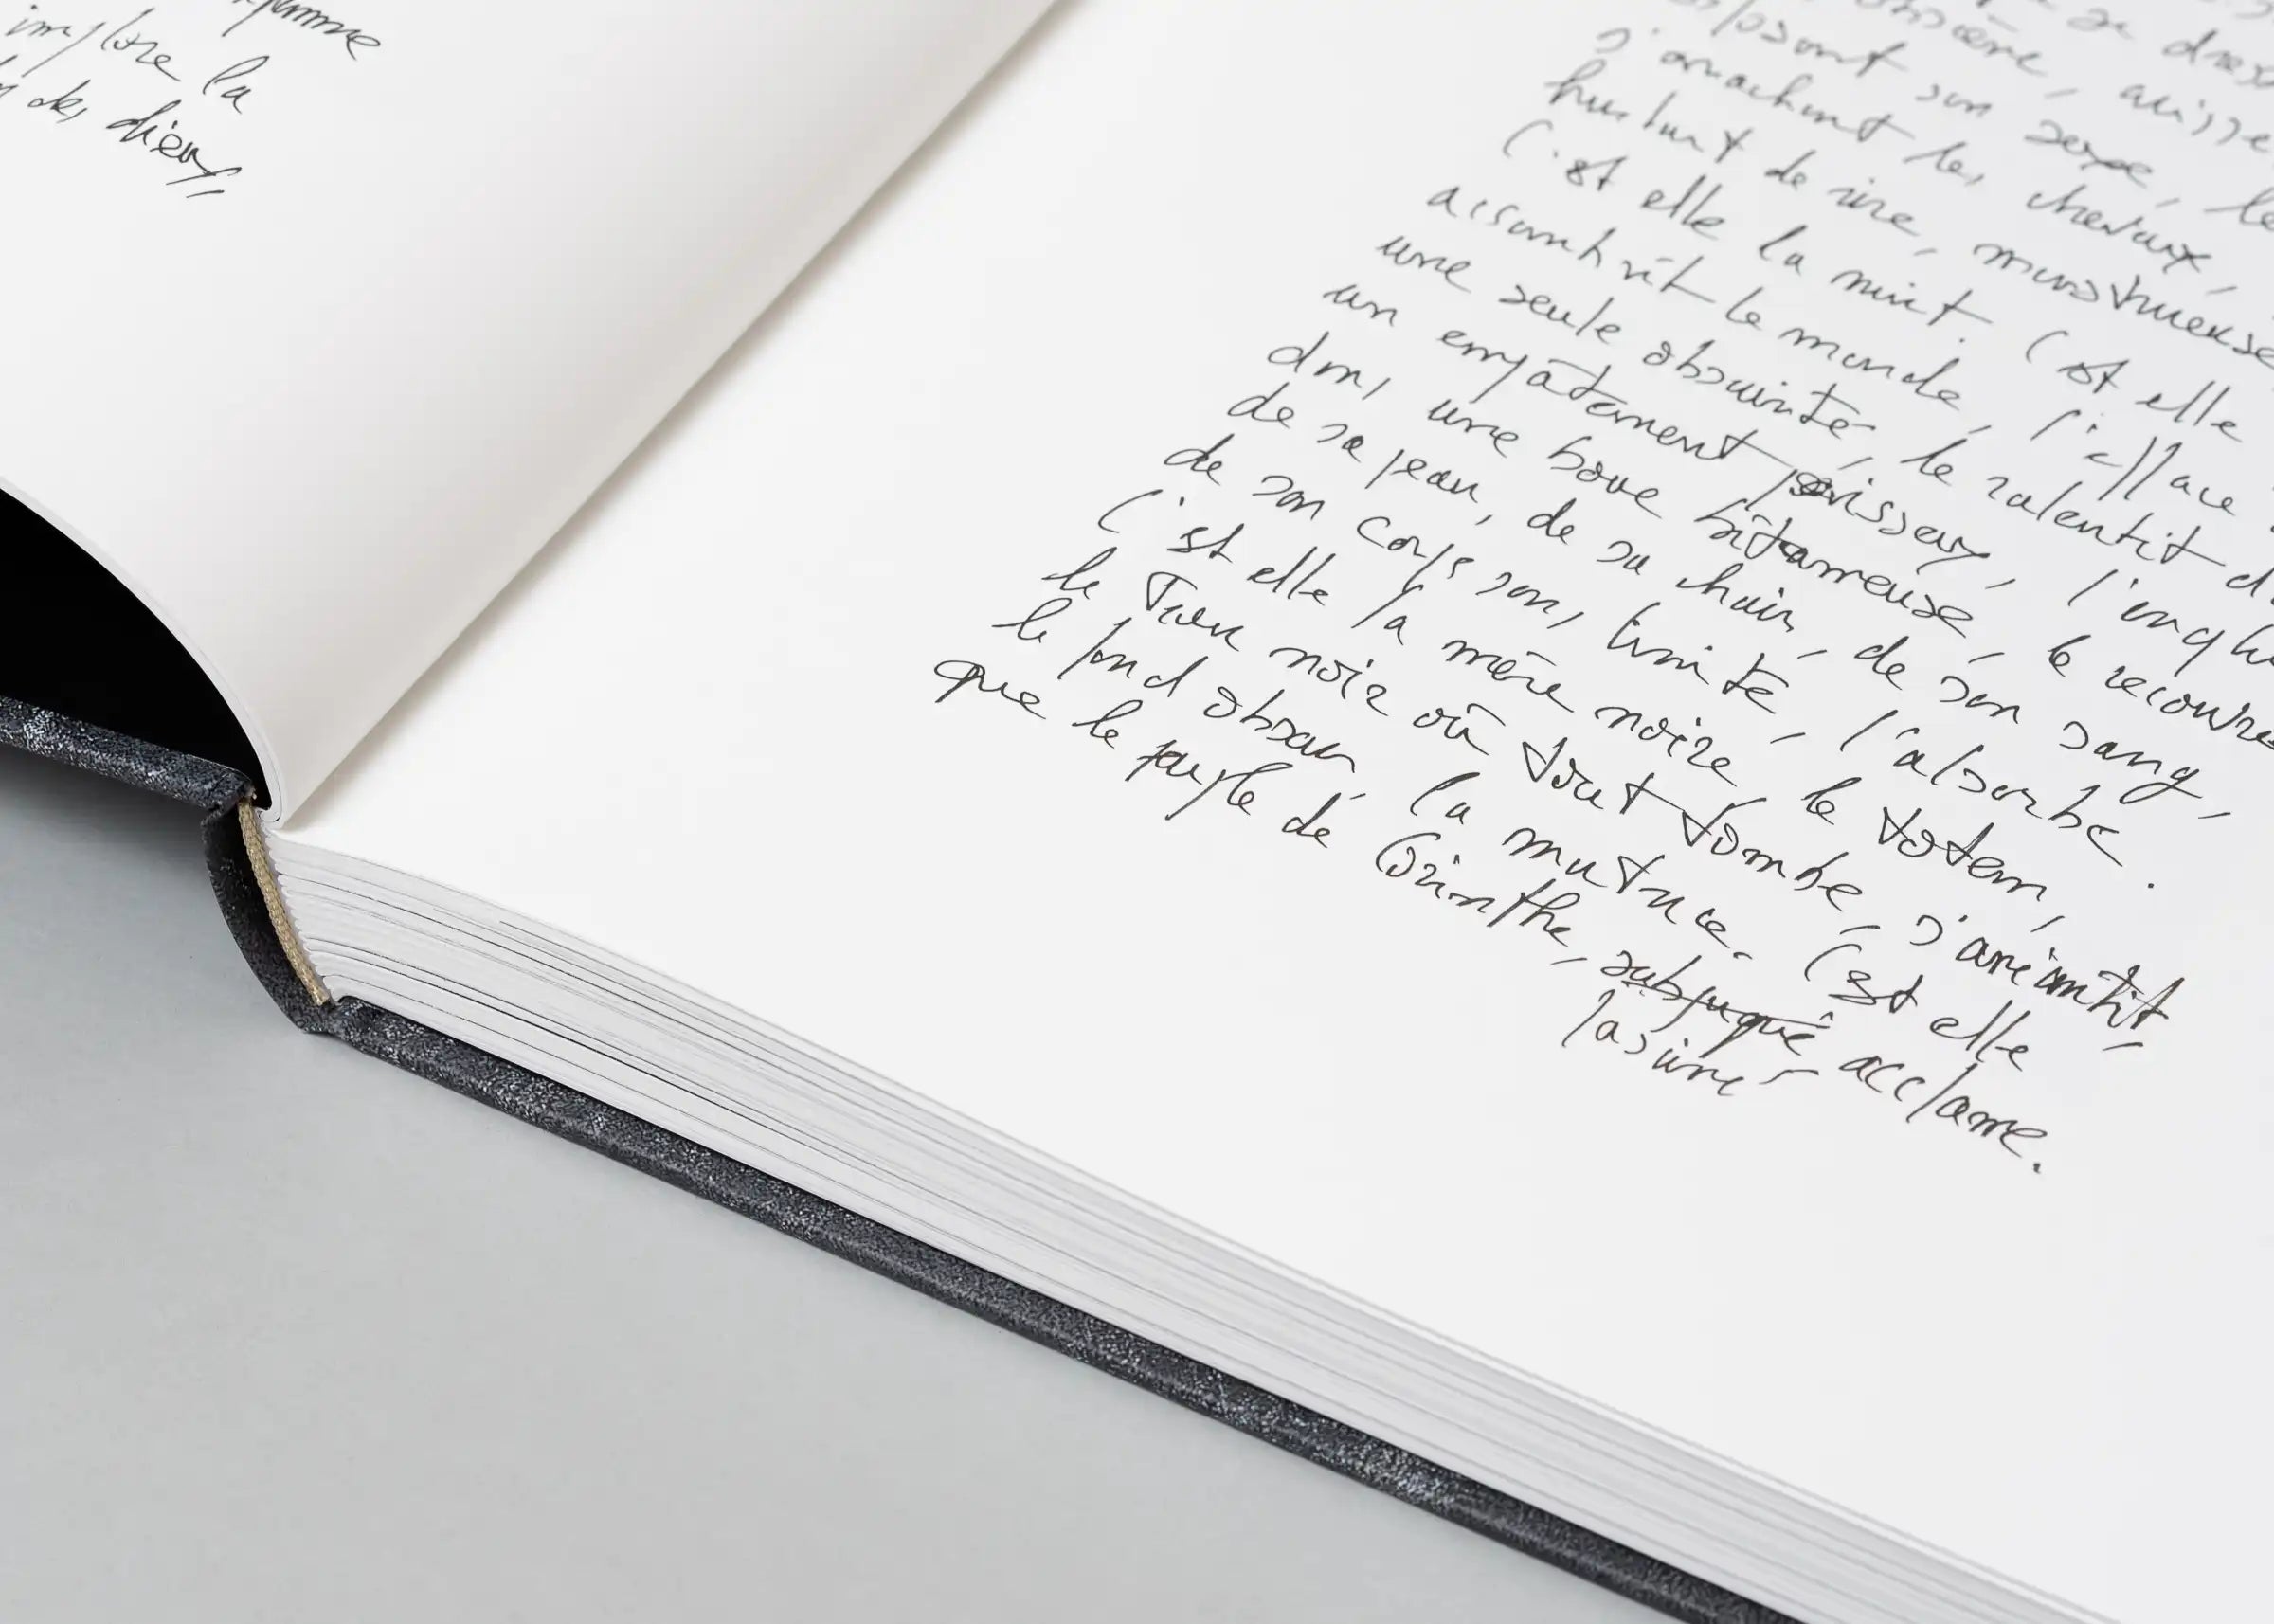 implore la
des dieux,
obscène,
son sexe, le
s'arrachant les cheveux,
hurlant de rire, monstrueuse
C'est elle la nuit. C'est elle
assombrit le monde, l'efface
une seule obscurité, le ralentit d
un empâtement poisseux, l'englu
dans une boue bitumeuse, le recouvre
de sa peau, de sa chair, de son sang,
de son corps sans limite, l'absorbe.
C'est elle la mère noire, le totem,
le Trou noir où tout tombe, s'anéantit,
le fond obscur, la matrice. C'est elle
que le peuple de Corinthe, subjugué acclame.
fasciné